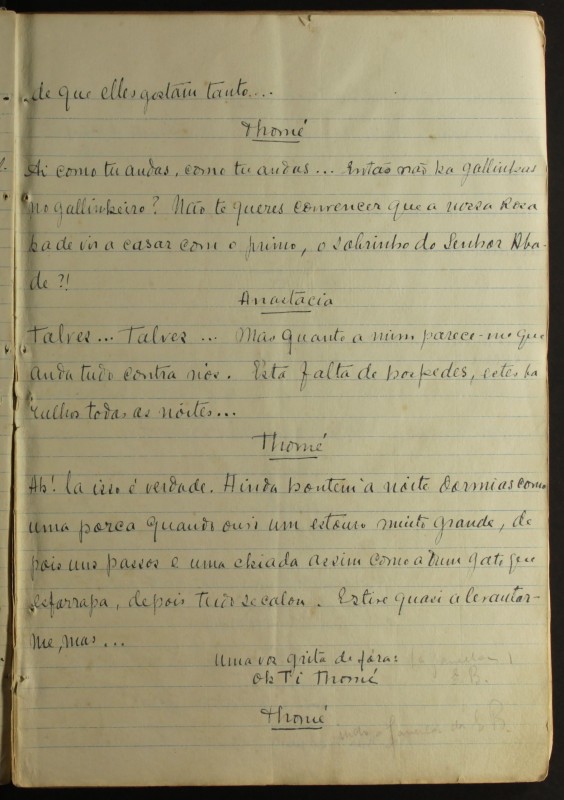 de que elles gostam tanto....
Thomé
Ai como tu andas, como tu andas... Então não ha gallinhas
no gallinheiro? Não te queres convencer que a nossa Rosa
ha de vir a casar com o primo, o sobrinho do Senhor Aba-
de?!
Anastácia
Talvez... Talvez... Mas quanto a mim parece-me que
anda tudo contra nós. Esta falta de hospedes, estes ba
rulhos todas as noites...
Thomé
Ah! la isso é verdade. Ainda hontem à noite dormias como
uma porca quando ouvi um estouro muito grande, de
pois uns passos e uma chiada assim como a d'um gato que
esfarrapa, depois tudo se calou. Estive quasi a levantar-
me, mas...
Uma voz grita de fóra:
Oh Ti Thomé
Thomé